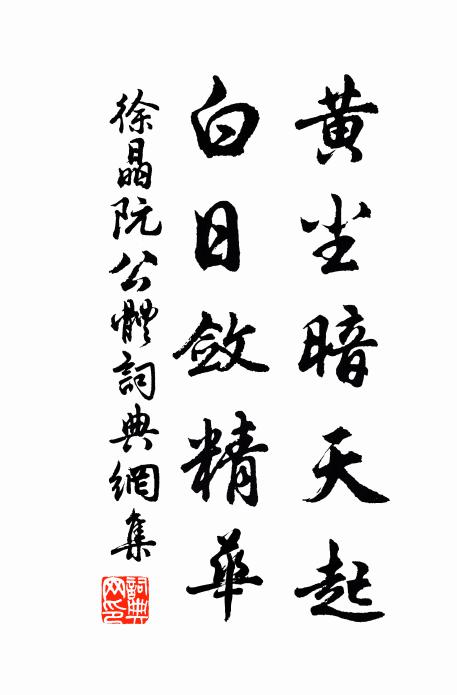 黄尘暗天起
白日敛精華
徐晶阮公體詞典網集
詞典网印